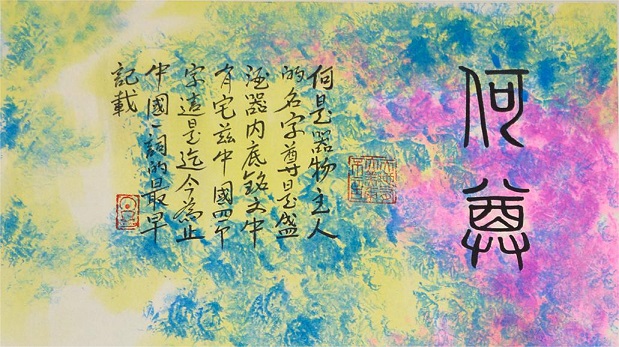 何尊
何是器物主人
的名字尊是盛
酒器内底銘文中
有宅兹中國四个
字這是迄今為止
中國一詞的最早
記載